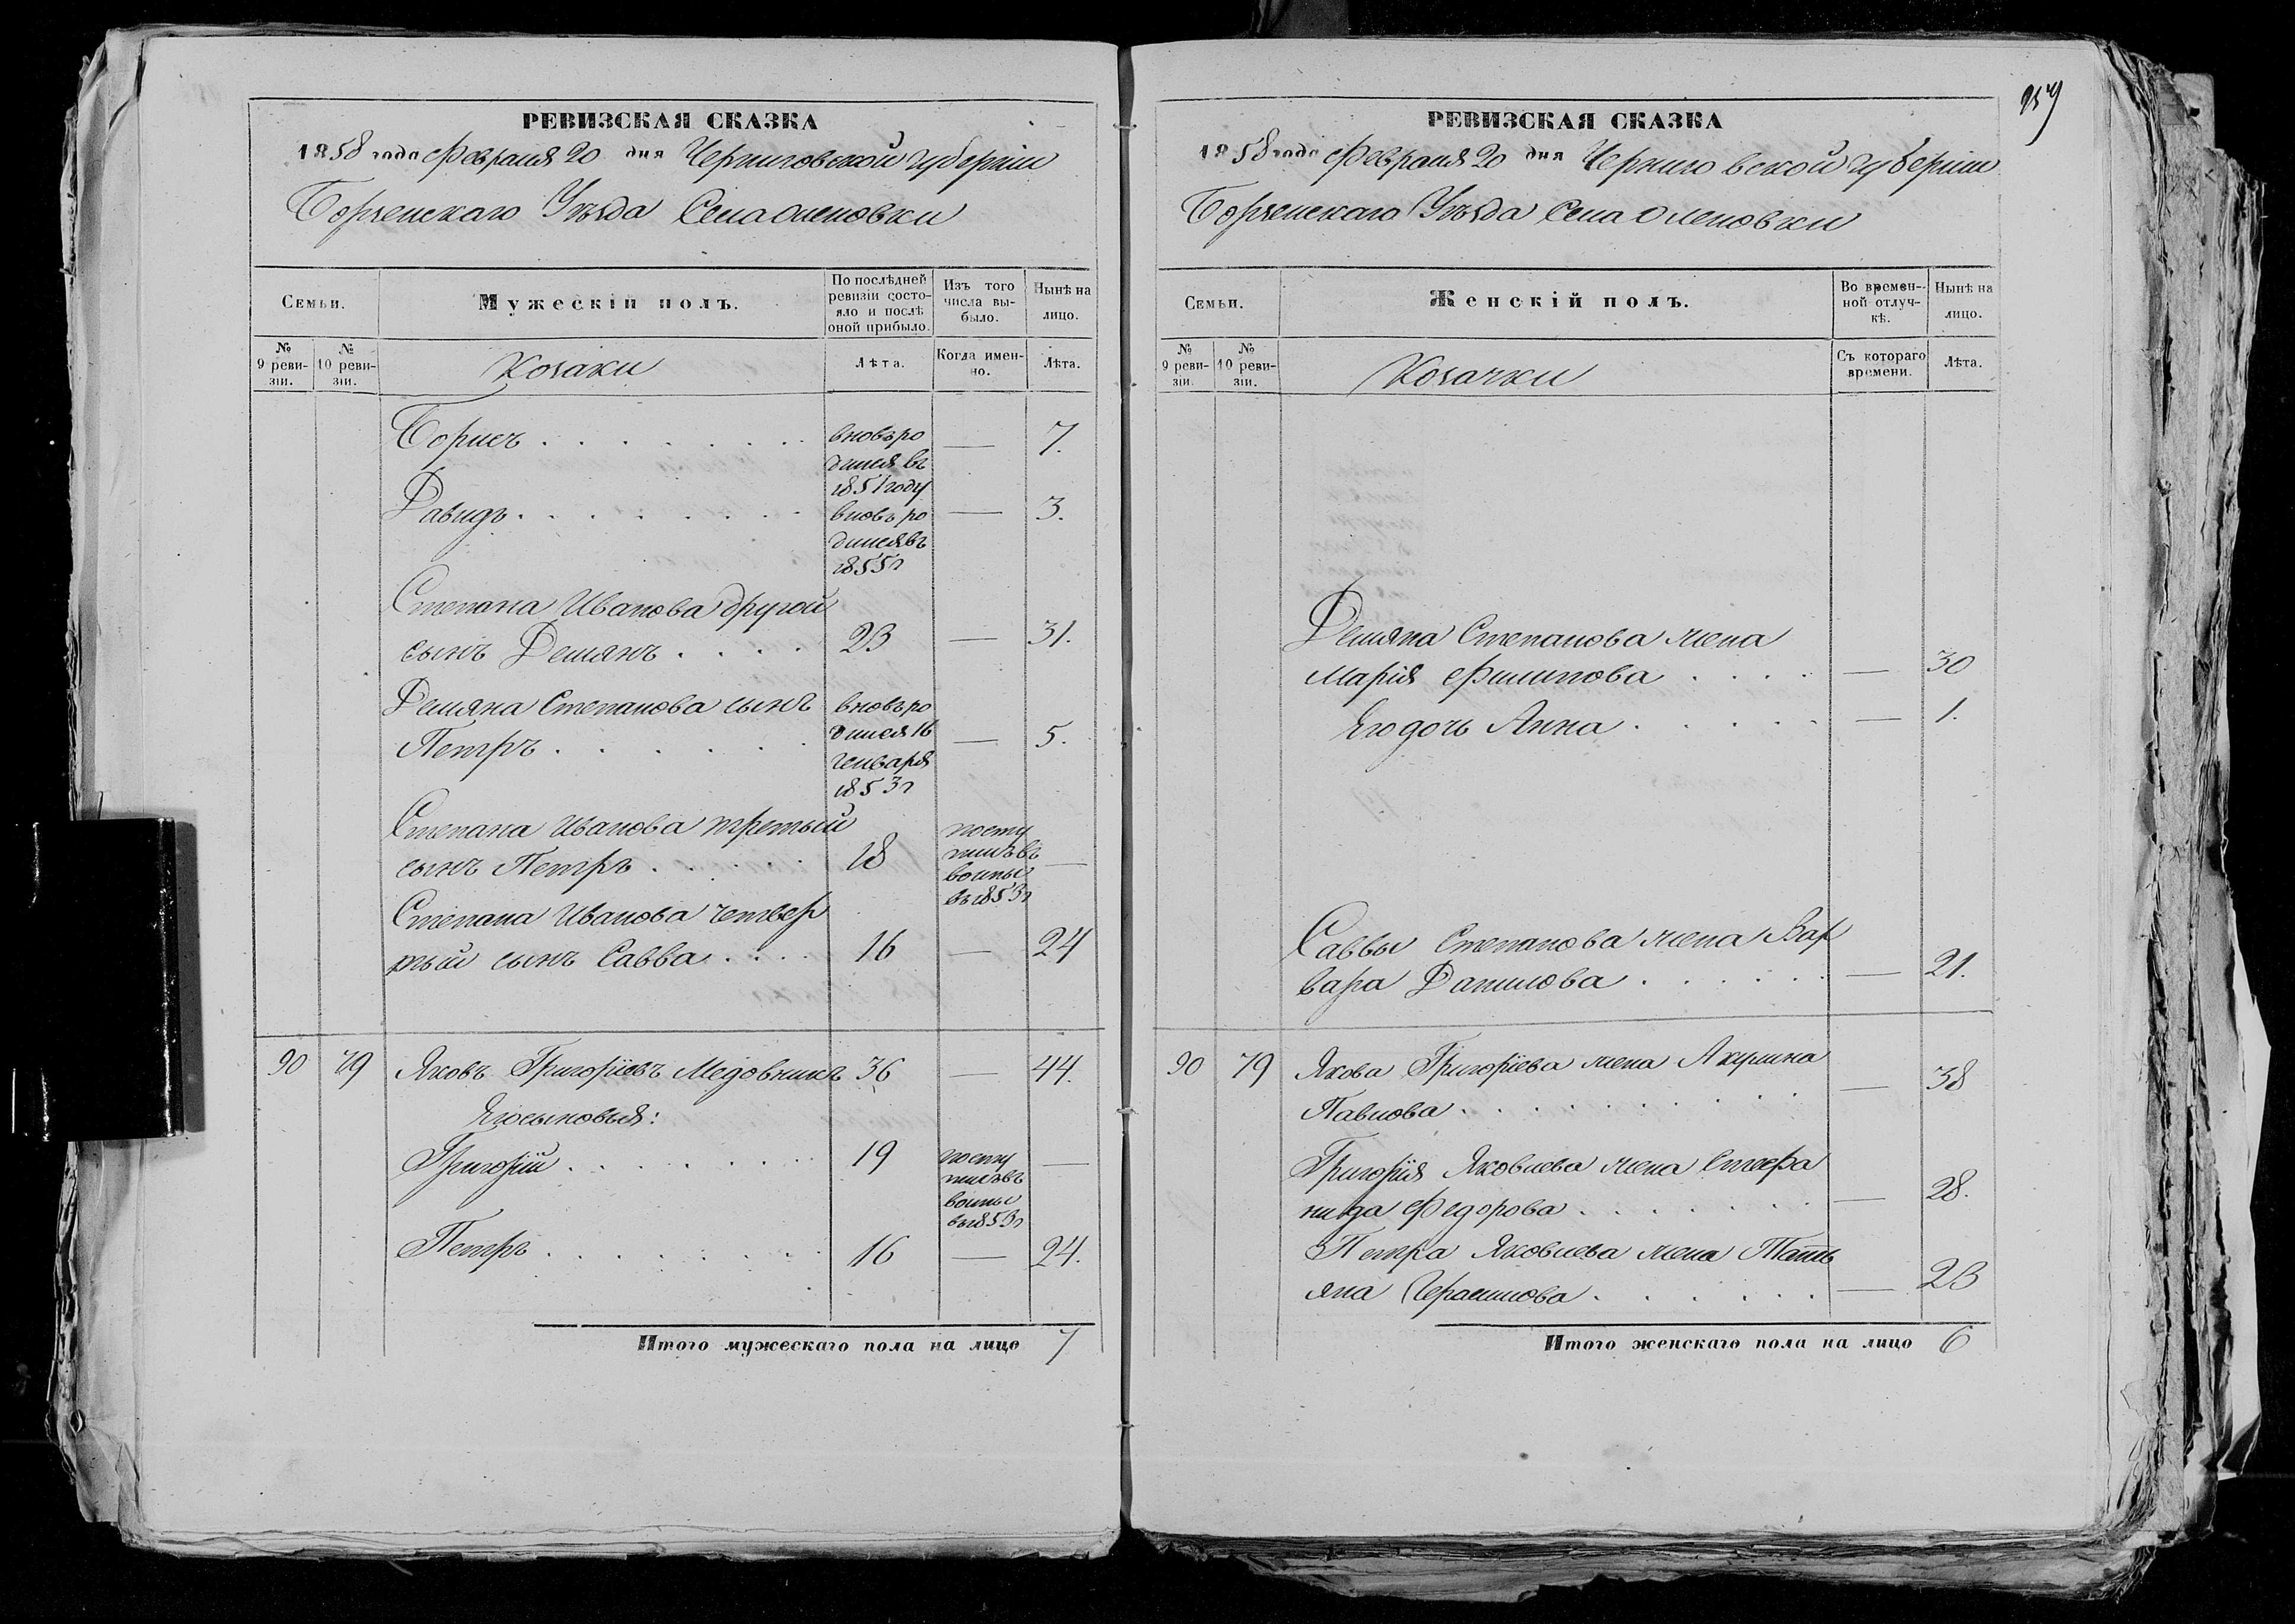 РЕВИЗСКАЯ СКАЗКА
1858 года Февраля 20 дня Черниговской губерніи
Борзенскаго Уѣзда Села Оленовки
Семьи.
Мужескій полъ.
По послѣдней ревизіи состояло и послѣ оной прибыло.
Изъ того числа выбыло.
Нынѣ на лицо.
№ 9 ревизіи.
№ 10 ревизіи.
Козаки
Лѣта.
Когда именно.
Лѣта.
Борисъ . . . . . . . . . вновь ро — 7.
дился въ
1851 году
Давидъ . . . . . . . . вновь ро — 3.
дился въ
1855 г
Степана Иванова другой
сынъ Демянъ . . . . 23 — 31.
Демяна Степанова сынъ вновь ро
Петръ . . . . . . . дился 16 — 5.
генваря
1853 г
Степана Иванова третый посту
сынъ Петръ . . . . . 18 пилъ въ —
воины
въ 1853 г
Степана Иванова четвер
тый сынъ Савва . . . . 16 — 24
90 79 Яковъ Григоріевъ Медовникъ 36 — 44.
Его сыновья:
Григорій . . . . . . . . 19 посту —
пилъ въ
воины
въ 1853 г
Петръ . . . . . . . . . 16 — 24.
Итого мужескаго пола на лицо 7
РЕВИЗСКАЯ СКАЗКА
1858 года Февраля 20 дня Черниговской губерніи
Борзенскаго Уѣзда Села Оленовки
Семьи.
Женскій полъ.
Во временной отлучкѣ.
Нынѣ на лицо.
№ 9 ревизіи.
№ 10 ревизіи.
Козачки
Съ котораго времени.
Лѣта.
Демяна Степанова жена
Марія Филипова . . . . — 30
Его дочь Анна . . . . . — 1.
Саввы Степанова жена Вар
вара Данилова . . . . . . — 21.
90 79 Якова Григорієва жена Акулина
Павлова . . . . . . . . . . — 38
Григорія Яковлева жена Стефа
нида Федорова . . . . . . . — 28.
Петра Яковлева жена Тать
яна Герасимова . . . . . . — 23
Итого женскаго пола на лицо 6